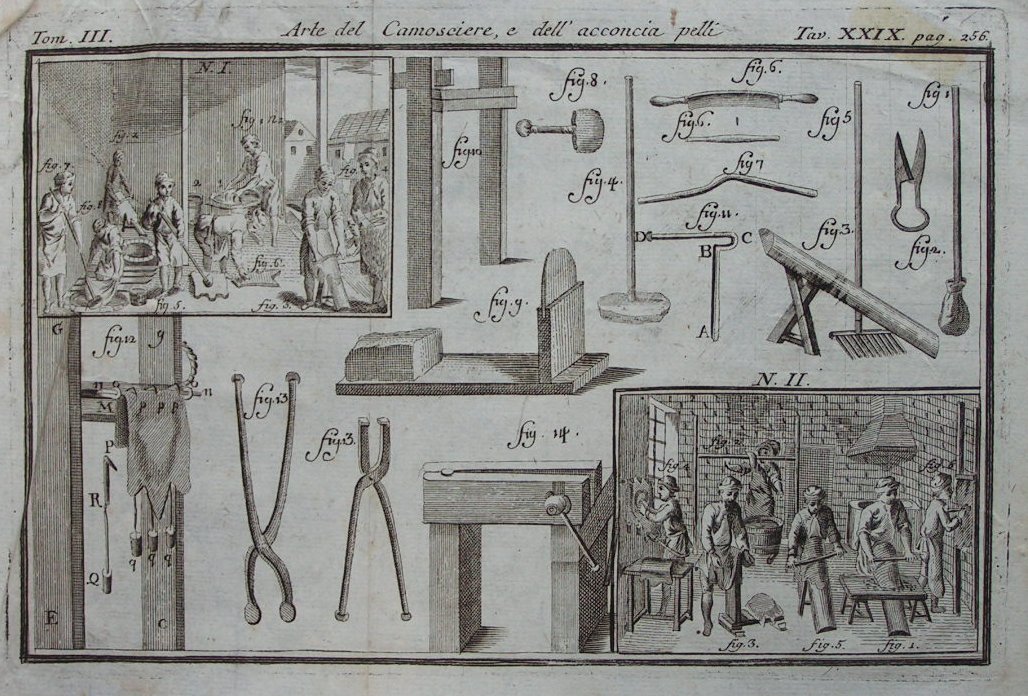 Tom. III.
Arte del Camosciere, e dell' acconcia pelli
Tav. XXIX. pag. 256.
N. I.
fig. 2.
fig. 7.
fig. 5.
fig. 6.
2
1
fig. 8.
fig. 6.
fig. 6.
1
fig 5
fig 1
fig 10
fig. 4.
fig 7
fig. 11.
D
C
B
A
fig. 3.
fig. 2.
fig. 9.
G
fig 12
g
n
n
M
P P P
P
R
Q
q q q
E
C
fig 13
fig 13.
fig. 14.
N. II.
fig. 2
fig. 4
fig. 3.
fig. 5.
fig. 1.